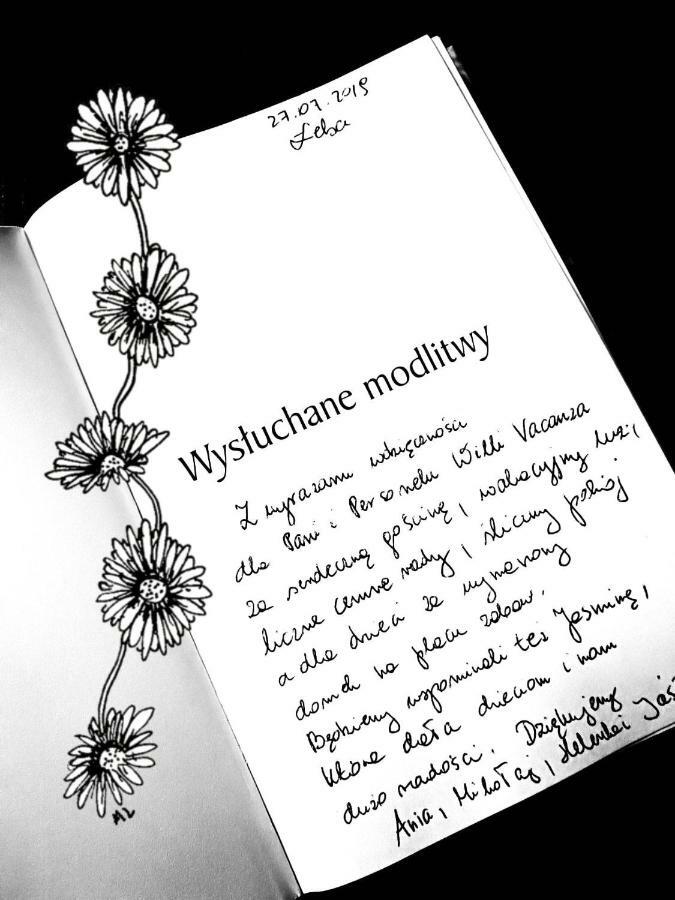 27.07.2019
Łeba
Wysłuchane modlitwy
Z wyrazami wdzięczności
dla Pani i Personelu Willi Vacanza
za serdeczną gościnę, wakacyjny luz,
liczne cenne rady, śliczny pokój
a dla dzieci za wymarzony
domek na placu zabaw.
Będziemy wspominali też Jasminę,
która dała dzieciom i nam
dużo radości. Dziękujemy
Ania, Mikołaj, Helenka i Jaś
AL